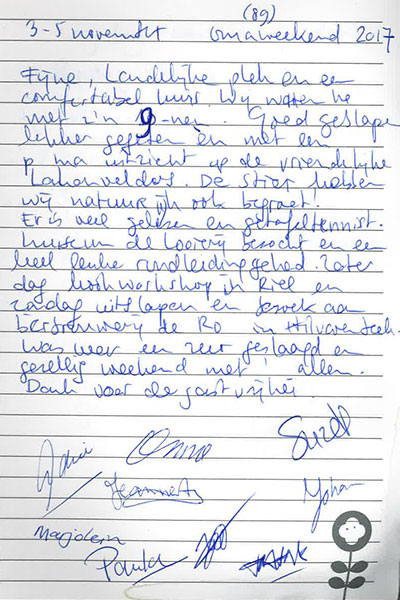 (89)
3-5 november omaweekend 2017
Fijne, Landelijke plek en een
comfortabel huis. Wij waren he
met z'n 9-nen. Goed geslapen
lekker gegeten en met een
p ma uitzicht op de vriendelijke
Lakenvelders. De Stier hebben
wij natuurlijk ook begroet!
Er is veel gelezen en getafeltennist.
museum de Looierij bezocht en een
heel leuke rondleiding gehad. Zater
dag workshop in Riel en
zondag uitslapen en bezoek aan
bierbrouwerij de Ro in Hilvarenbeek.
Was weer een zeer geslaagd en
gezellig weekend met ' allen.
Dank voor de gastvrijhei.
Onno
Jeannette
Johan
Marjolein
Paula